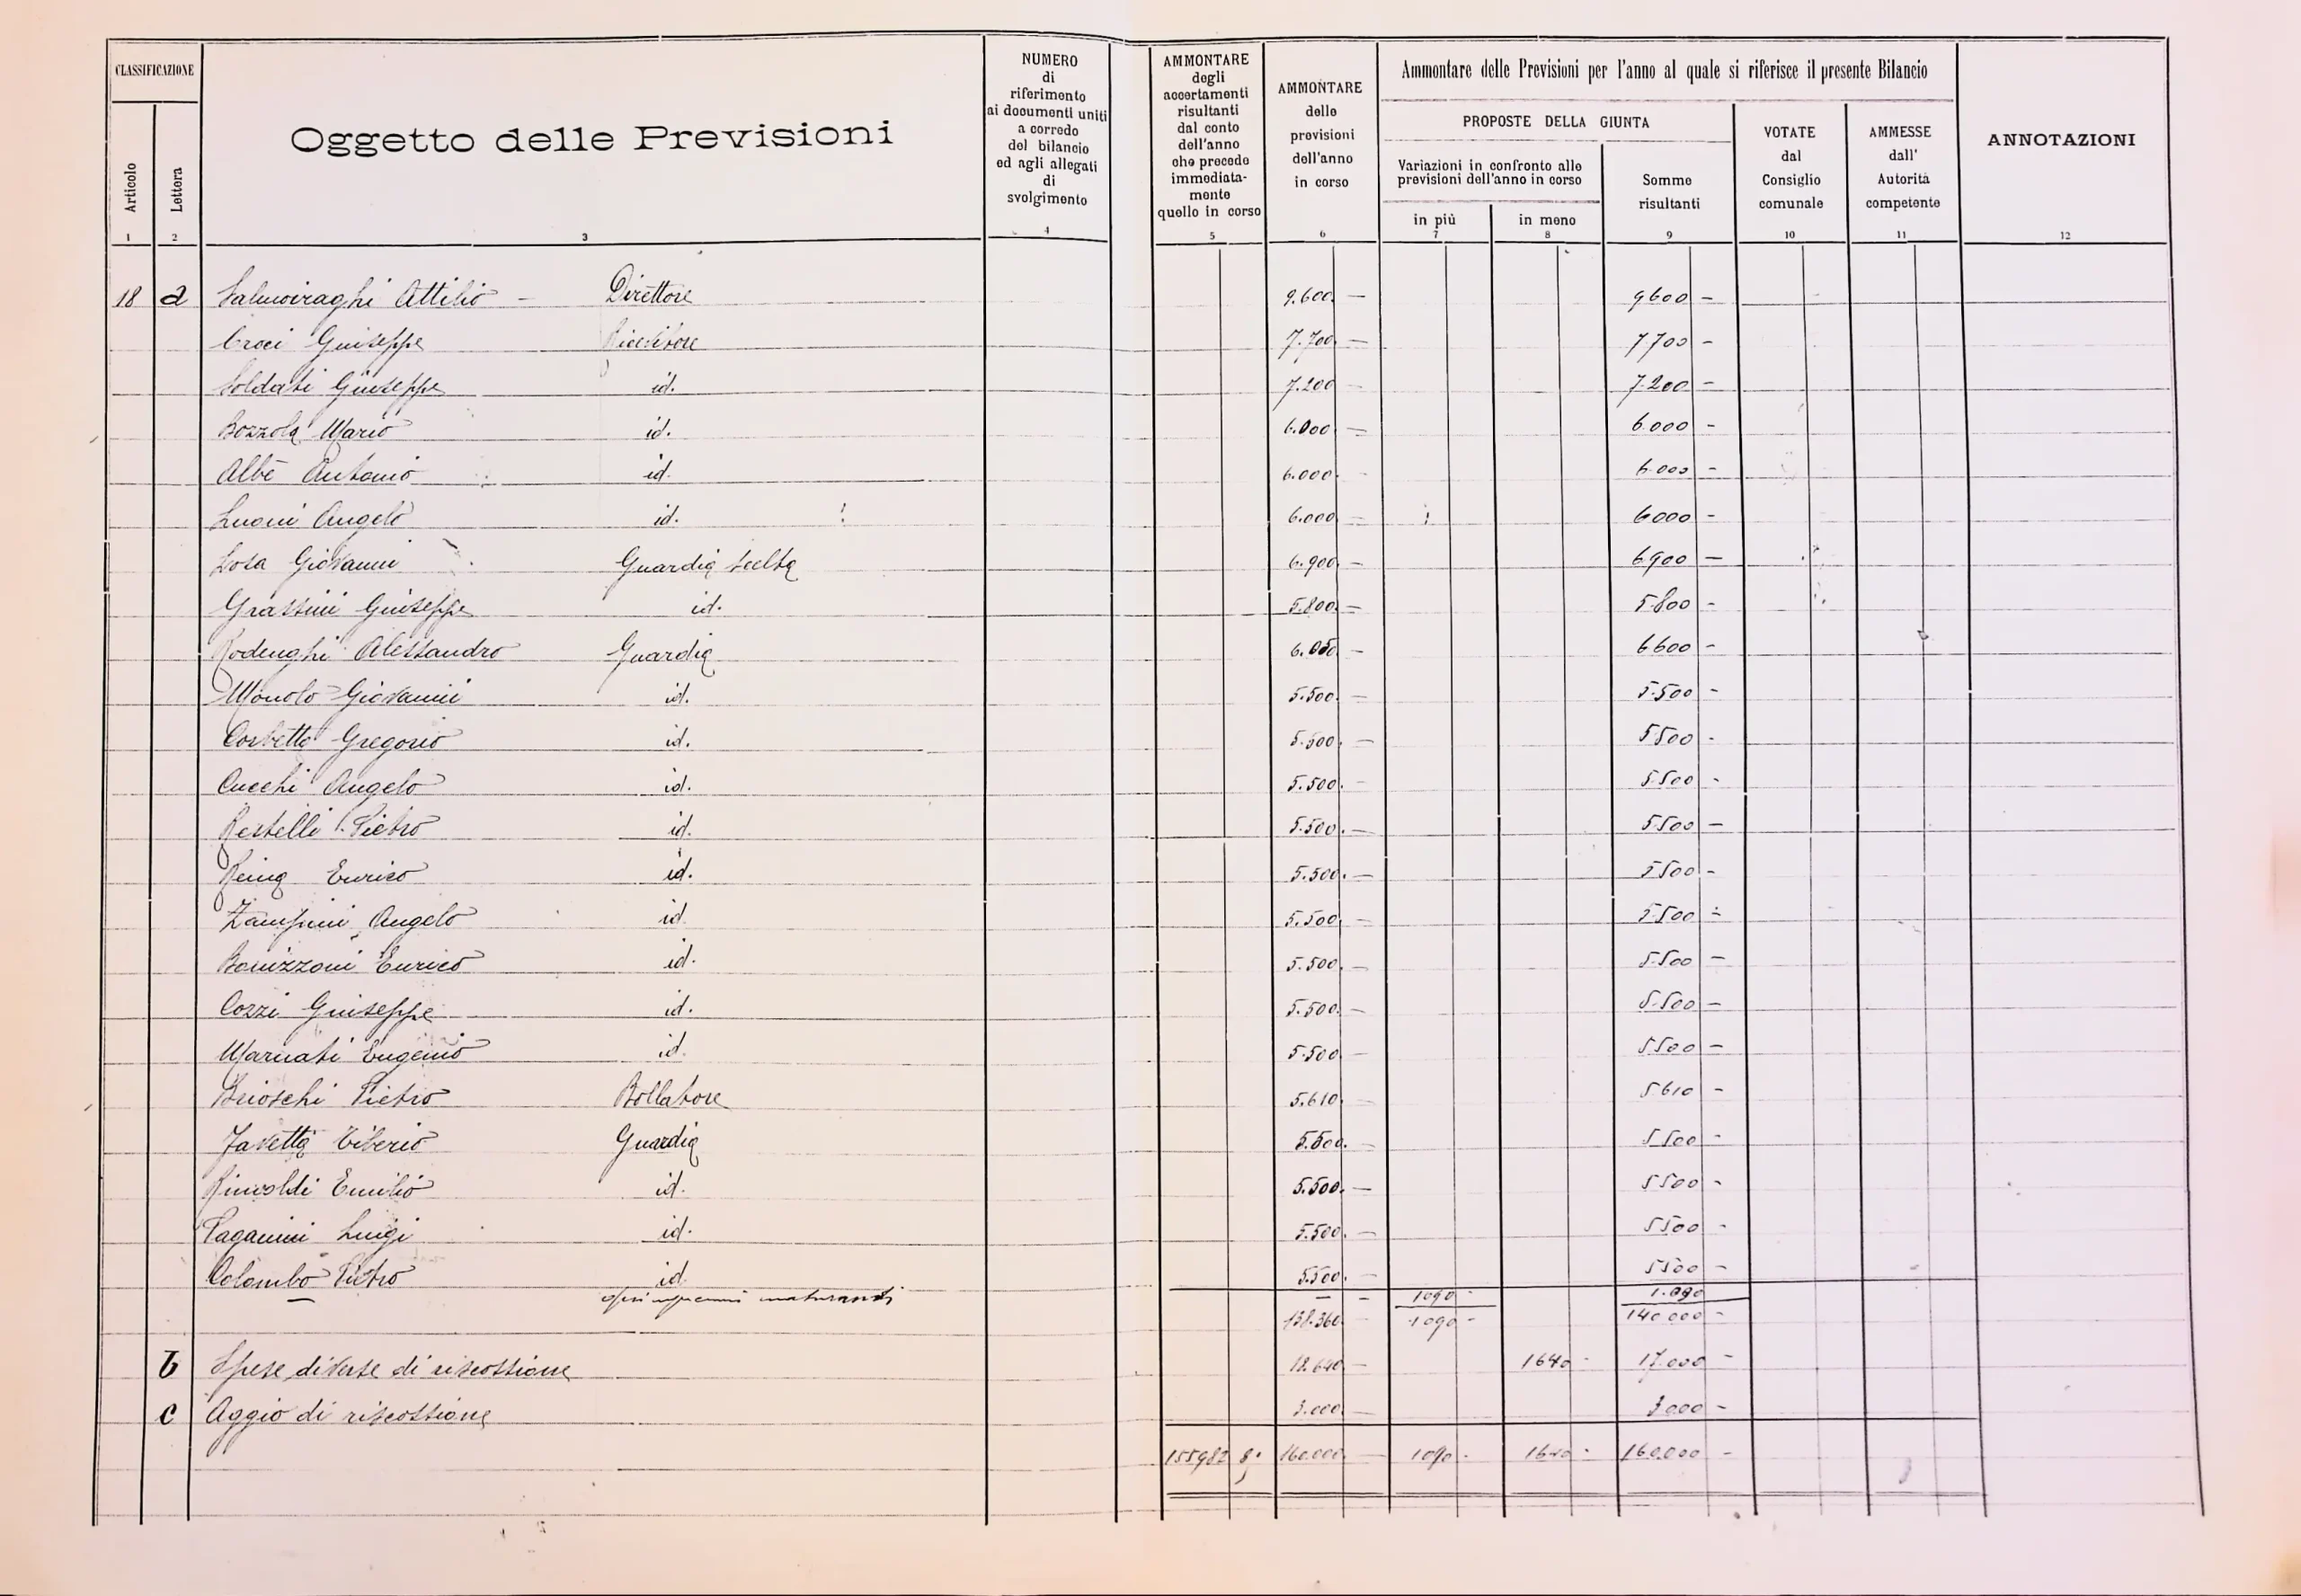 CLASSIFICAZIONE
Articolo
Lettera
Oggetto delle Previsioni
NUMERO di riferimento ai documenti uniti a corredo del bilancio ed agli allegati di svolgimento
AMMONTARE degli accertamenti risultanti dal conto dell'anno che precede immediatamente quello in corso
AMMONTARE delle previsioni dell'anno in corso
Ammontare delle Previsioni per l'anno al quale si riferisce il presente Bilancio
PROPOSTE DELLA GIUNTA
Variazioni in confronto alle previsioni dell'anno in corso
in più
in meno
Somme risultanti
VOTATE dal Consiglio comunale
AMMESSE dall' Autorità competente
ANNOTAZIONI
1 2 3 4 5 6 7 8 9 10 11 12
18 a Salmoiraghi Attilio – Direttore 9.600 — 9600 –
Croci Giuseppe Ricevitore 7.700 — 7700 –
Soldati Giuseppe id. 7.200 — 7.200 –
Bozzola Mario id. 6.000 — 6.000 –
Albè Antonio id. 6.000 – 6.000 –
Luoni Angelo id. 6.000 — 6000 –
Losa Giovanni Guardia scelta 6.900 – 6900 –
Grassini Giuseppe id. 5.800 – 5.800 –
Rodenghi Alessandro Guardia – 6600 –
Monolo Giovanni id. 5.500 – 5.500 –
Corbetta Gregorio id. 5.500. — 5500 -
Cucchi Angelo id. 5.500. – 5.500 -
Restelli Pietro id. 5.500. — 5500 –
Reina Enrico id. 5.500. — 5500 -
Zampini Angelo id. 5.500. – 5.500 –
Bonizzoni Enrico id. 5.500. – 5.500 –
Cozzi Giuseppe id. 5.500. – 5.500 –
Marnati Eugenio id. 5.500 – 5500 –
Brioschi Pietro Bollatore 5.610 – 5610 –
Favetta Tiberio Guardia 5.500. – 5500 -
Rimoldi Emilio id. 5.500. — 5500 -
Paganini Luigi id. 5.500. – 5500 -
Colombo Pietro id. 5.500. – 5500 –
maturandi – – 1090 - 1.090
138.360 – 1090 – 140.000 –
b Spese diverse di riscossione 18.640 – 1640 - 17.000 –
c Aggio di riscossione 3.000 — 3000 –
155982 160.000 — 1090 - 1640 - 160.000 –